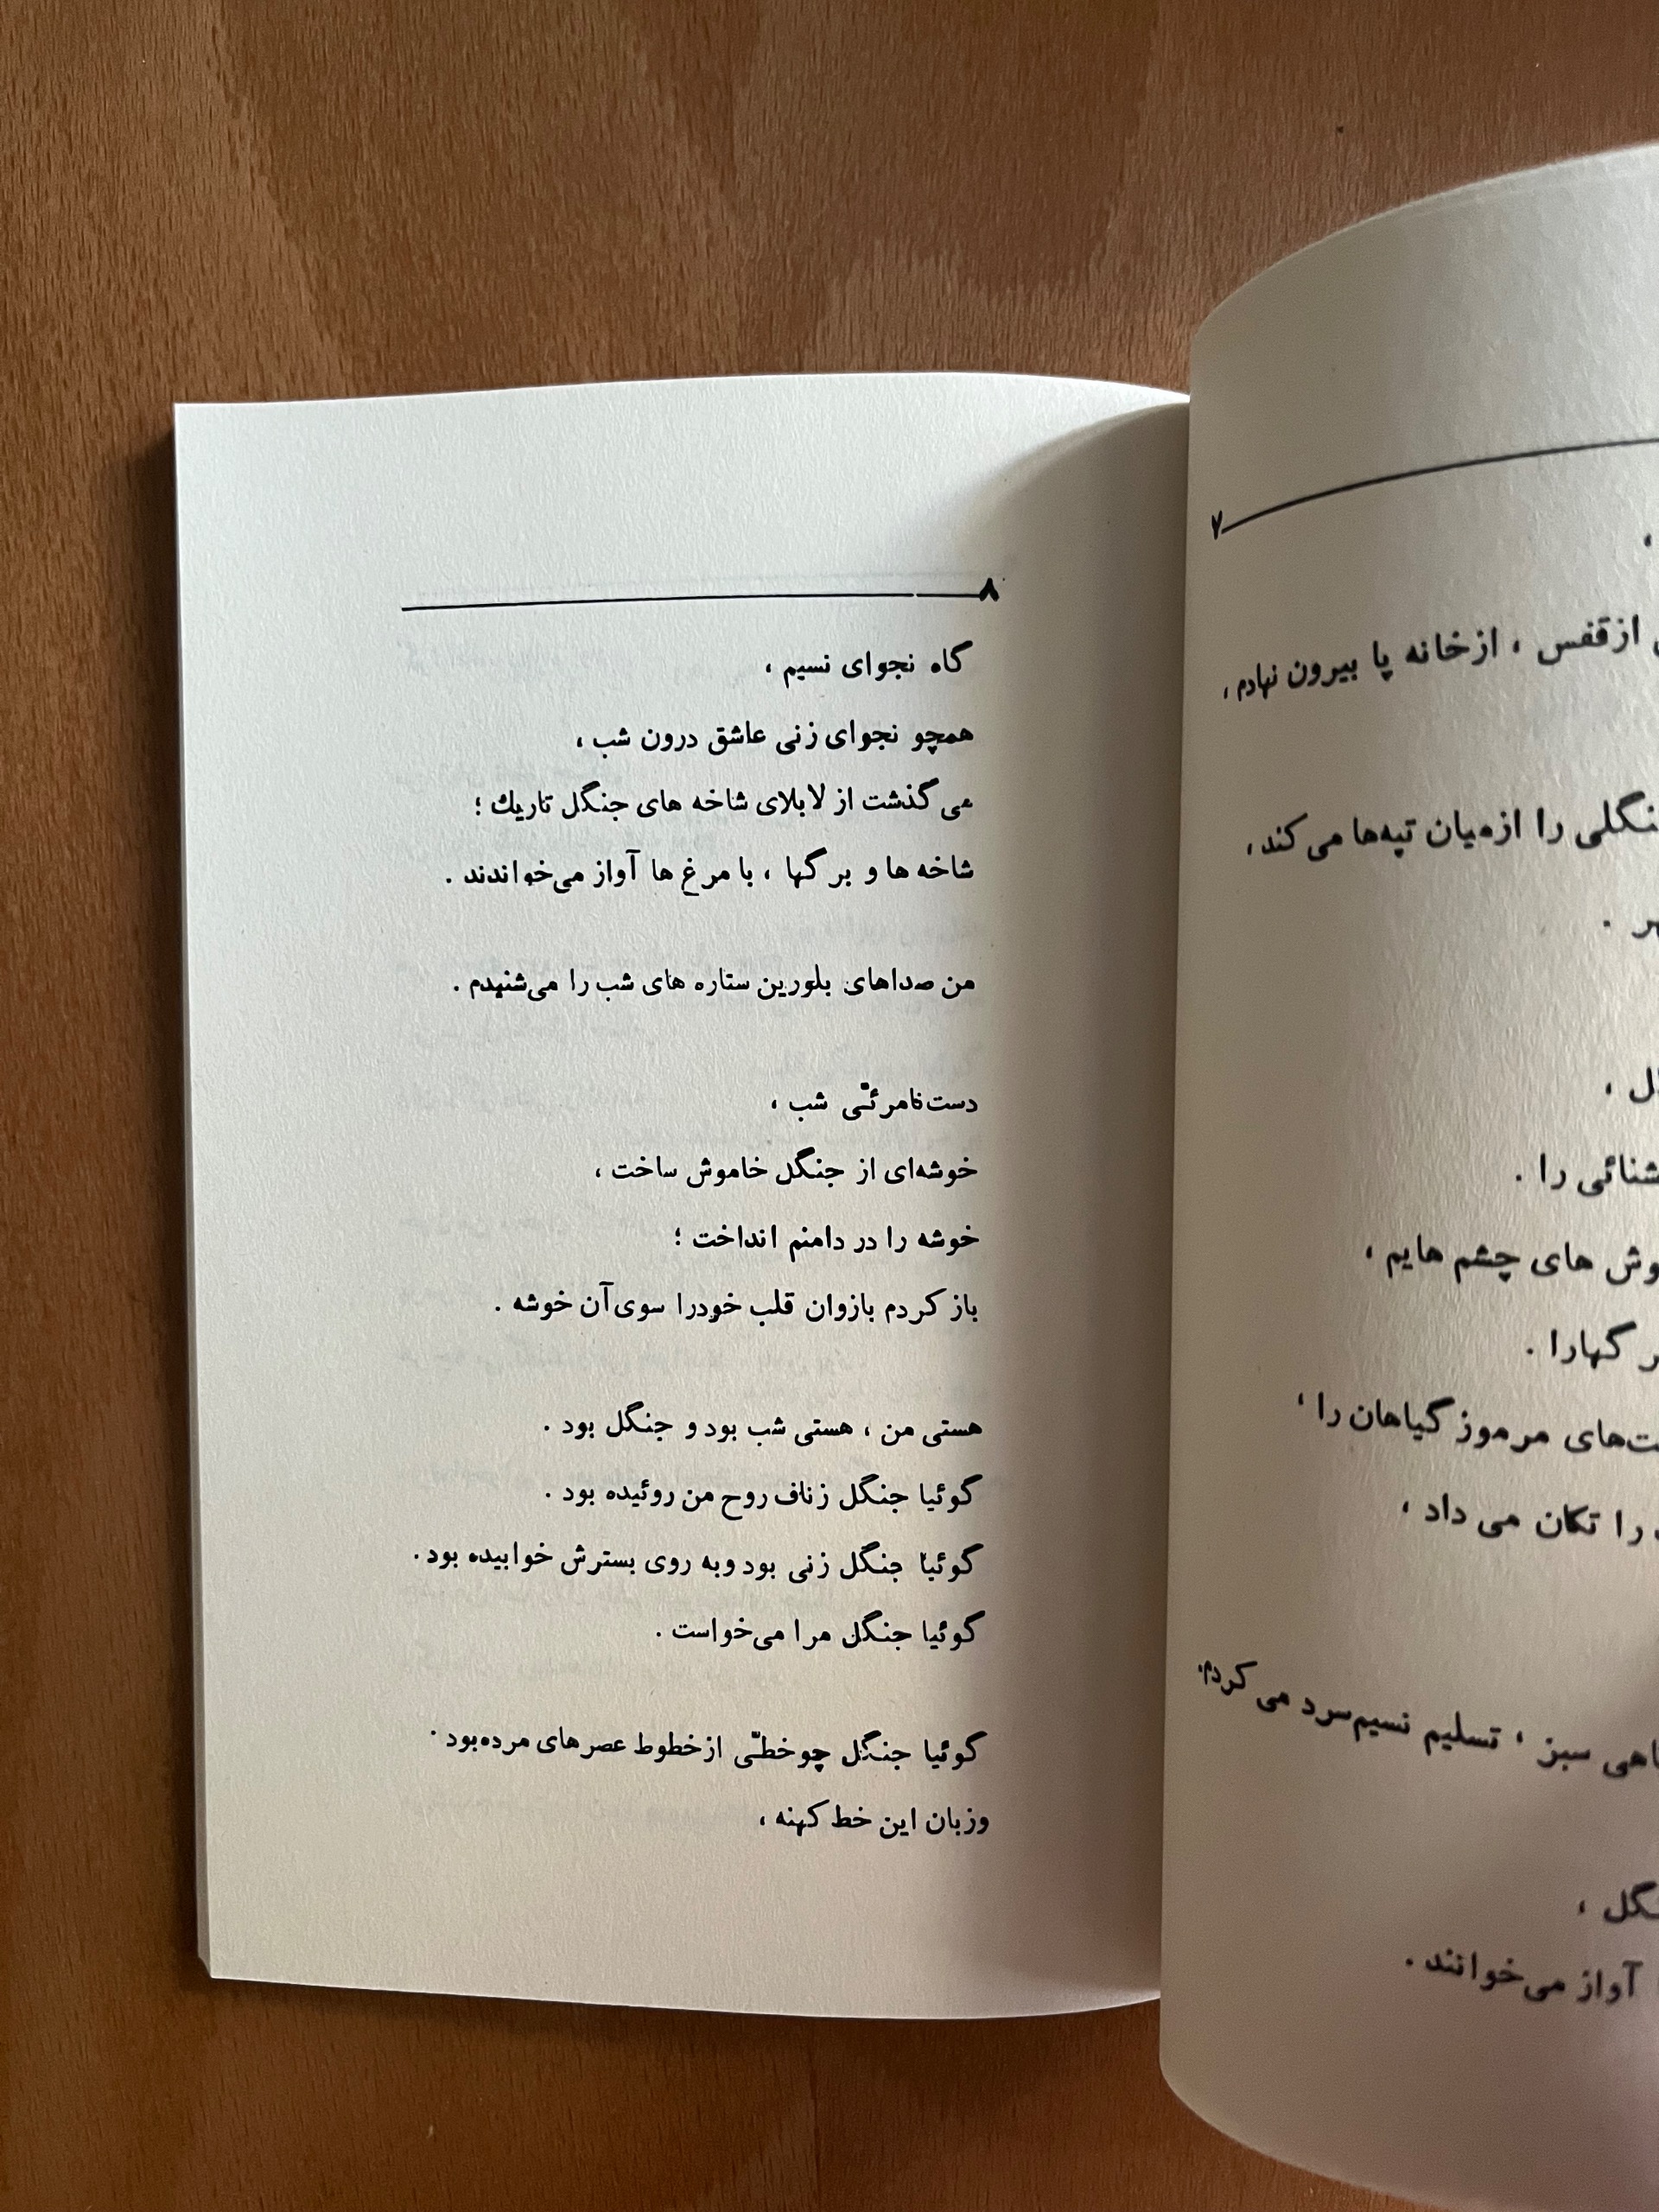 ۷
از قفس ، از خانه پا بیرون نهادم ،
را از میان تپه‌ها می‌کند ،
.
،
را .
های چشم هایم ،
.
مرموز گیاهان را ،
را تکان می داد ،
سبز ، تسلیم نسیم سرد می کردم .
،
آواز می‌خوانند .
۸
گاه نجوای نسیم ،
همچو نجوای زنی عاشق درون شب ،
می گذشت از لابلای شاخه های جنگل تاریك ؛
شاخه ها و برگها ، با مرغ ها آواز می‌خواندند .
من صداهای بلورین ستاره های شب را می‌شنیدم .
دست نامرئّی شب ،
خوشه‌ای از جنگل خاموش ساخت ،
خوشه را در دامنم انداخت ؛
باز کردم بازوان قلب خودرا سوی آن خوشه .
هستی من ، هستی شب بود و جنگل بود .
گوئیا جنگل زناف روح من روئیده بود .
گوئیا جنگل زنی بود وبه روی بسترش خوابیده بود .
گوئیا جنگل مرا می‌خواست .
گوئیا جنگل چو خطّی از خطوط عصرهای مرده بود .
وزبان این خط کهنه ،